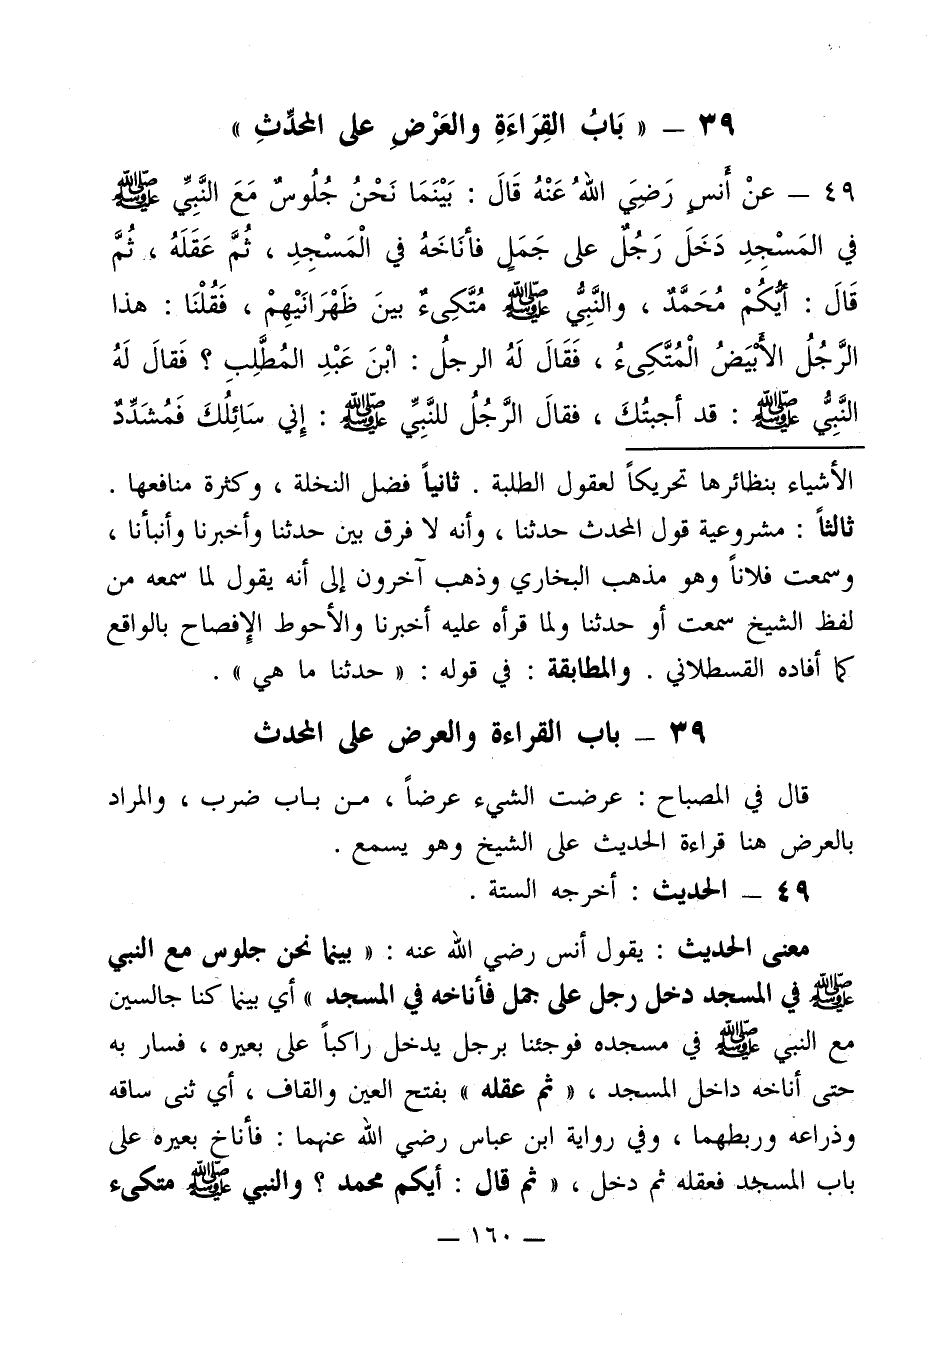 ٣٩ – « بَابُ القِرَاءَةِ والعَرْضِ على المحدِّثِ »
٤٩ – عنْ أَنسٍ رَضِيَ اللهُ عَنْهُ قَالَ : بَيْنَمَا نَحْنُ جُلُوسٌ مَعَ النَّبِيِّ ﷺ
في المَسْجِدِ دَخَلَ رَجُلٌ على جَمَلٍ فأنَاخَهُ في الْمَسْجِدِ ، ثُمَّ عَقَلَهُ ، ثُمَّ
قَالَ : أَيُّكُمْ مُحَمَّدٌ ، والنَّبِيُّ ﷺ مُتَّكِىءٌ بينَ ظَهْرَانَيْهِمْ ، فَقُلْنَا : هذا
الرَّجُلُ الأَبْيَضُ الْمُتَّكِىءُ ، فَقَالَ لَهُ الرجلُ : ابْنَ عَبْدِ المُطَّلِبِ ؟ فَقالَ لَهُ
النَّبِيُّ ﷺ : قد أجبتُكَ ، فقالَ الرَّجُلُ للنَّبِيِّ ﷺ : إِني سَائِلُكَ فَمُشَدِّدٌ
الأشياء بنظائرها تحريكاً لعقول الطلبة . ثانياً فضل النخلة ، وكثرة منافعها .
ثالثاً : مشروعية قول المحدث حدثنا ، وأنه لا فرق بين حدثنا وأخبرنا وأنبأنا ،
وسمعت فلاناً وهو مذهب البخاري وذهب آخرون إلى أنه يقول لما سمعه من
لفظ الشيخ سمعت أو حدثنا ولما قرأه عليه أخبرنا والأحوط الإفصاح بالواقع
كما أفاده القسطلاني . والمطابقة : في قوله : « حدثنا ما هي » .
٣٩ – باب القراءة والعرض على المحدث
قال في المصباح : عرضت الشيء عرضاً ، من باب ضرب ، والمراد
بالعرض هنا قراءة الحديث على الشيخ وهو يسمع .
٤٩ – الحديث : أخرجه الستة .
معنى الحديث : يقول أنس رضي الله عنه : « بينما نحن جلوس مع النبي
ﷺ في المسجد دخل رجل على جمل فأناخه في المسجد » أي بينما كنا جالسين
مع النبي ﷺ في مسجده فوجئنا برجل يدخل راكباً على بعيره ، فسار به
حتى أناخه داخل المسجد ، « ثم عقله » بفتح العين والقاف ، أي ثنى ساقه
وذراعه وربطهما ، وفي رواية ابن عباس رضي الله عنهما : فأناخ بعيره على
باب المسجد فعقله ثم دخل ، « ثم قال : أيكم محمد ؟ والنبي ﷺ متكىء
– ١٦٠ –